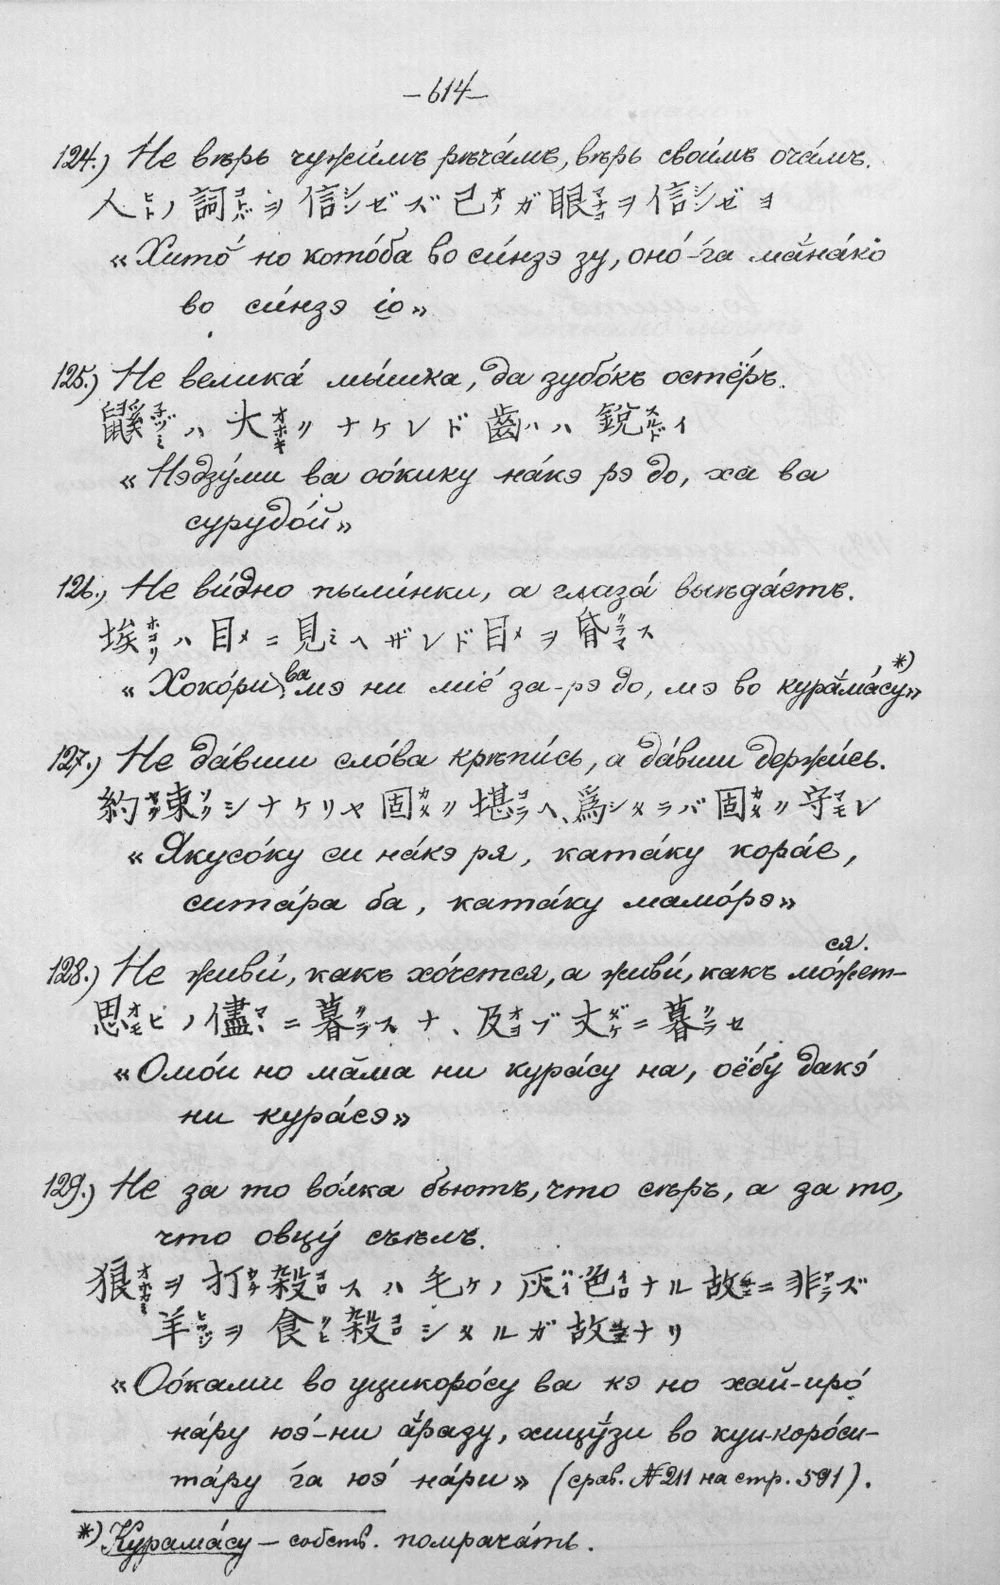 –614–
124.) Не вѣрь чужи́мъ рѣча́мъ, вѣрь свои́мъ оча́мъ.
人ヒトノ詞コトバヲ信シンゼズ己オノガ眼マナコヲ信シンゼヨ
«Хито́ но кото́ба во си́нзэ зу, оно́-га ма́на́ко
во си́нзэ іо»
125.) Не велика́ мы́шка, да зубо́къ остёръ.
鼷子ヅミハ大オホキクナケレド齒ハハ鋭スルドイ
«Нэдзу́ми ва оо́кику на́кэ рэ до, ха ва
сурудо́й»
126.) Не ви́дно пыли́нки, а глаза́ выѣда́етъ.
埃ホコリハ目メニ見ミヘザレドト目メヲ昏クラマス
«Хоко́ри ва мэ ни міе́ за-рэ до, мэ во кура́ма́су*)»
127.) Не да́вши сло́ва крѣпи́сь, а да́вши держи́сь.
約ヤク束ソクシナケリャ固カタク堪コラヘ、爲シタラバ固カタク守マモレ
«Якусо́ку си на́кэ ря, ката́ку кора́е,
сита́ра ба, ката́ку мамо́рэ»
128.) Не живи́, какъ хо́чется, а живи́, какъ мо́жет-
ся.
思オモヒノ儘マヽニ暮クラスナ、及オヨブ丈ダケニ暮クラセ
«Омо́и но ма́ма ни кура́су на, оёбу́ дакэ́
ни кура́сэ»
129.) Не за то во́лка бьютъ, что сѣръ, а за то,
что овцу́ съѣлъ.
狼オホカミヲ打ウチ殺コロスハ毛ケノ灰ハイ色イロナル故ユヱニ非アラズ
羊ヒツジヲ食クヒ殺コロシタルガ故ユヱナリ
«Оо́ками во уцикоро́су ва кэ но хай-иро́
на́ру юэ́-ни а́разу, хицу́зи во куи-коро́си-
та́ру га юэ́ на́ри» (срав. №211 на стр. 591).
*) Курама́су – собств. помрача́ть.